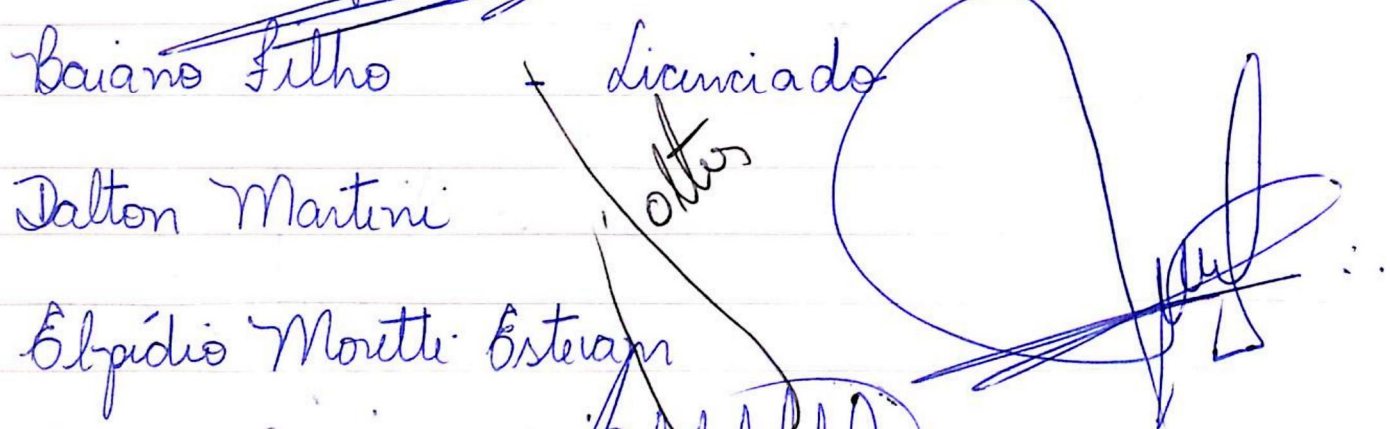 Baiano Filho - Licenciado
Dalton Martini
Elpídio Moretti Estevam